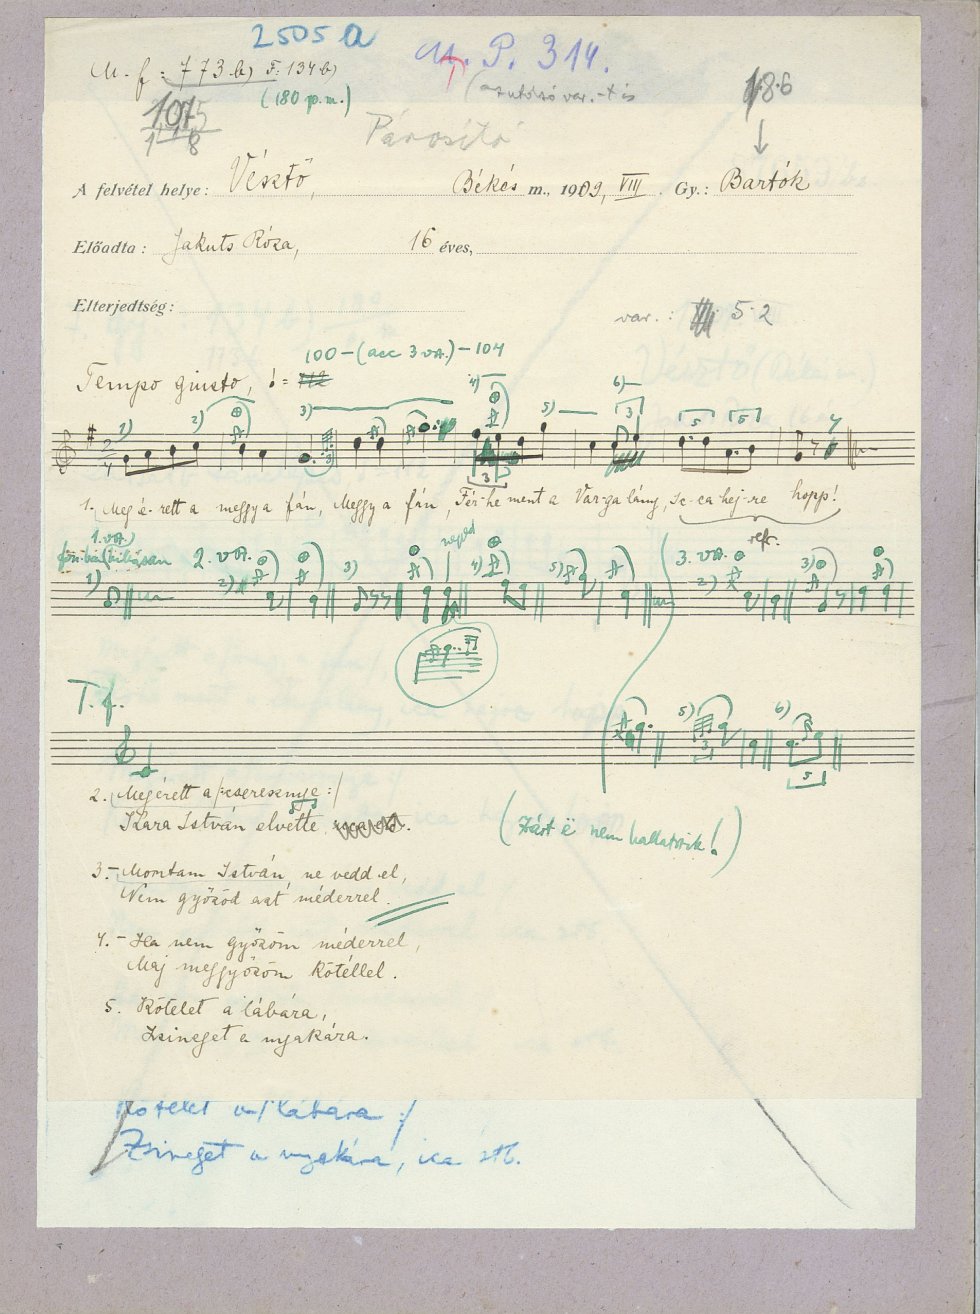 2505 a
M. P. 314.
M. f.: 773.b) F. 134 b)
(180 p.m.)
(az utolsó var.-t is
18.6
Párosító
A felvétel helye: Vésztő, Békés m., 1909, VIII. Gy.: Bartók
Előadta: Jakuts Róza, 16 éves,
Elterjedtség:
var.: 5.2
100-(acc 3 vsz.)-104
Tempo giusto,
1) 2) 3) 4) 5) 6)
1. Megé-rett a meggy a fán, Meggy a fán, Fér-he ment a Var-ga lány, ic-ca-hej-re hopp!
refr.
1. vsz.)
2. vsz.
3. vsz.
T. f.
2. Megérett a /:cseresznye:/
Kara István elvette
(Zárt ë nem hallatszik!)
3.-Montam István ne vedd el,
Nem győzöd azt méderrel.
4.-Ha nem győzöm méderrel,
Maj meggyőzöm kötéllel.
5. Kötelet a lábára,
Zsineget a nyakára.
Kötelet a/:lábára:/
Zsineget a nyakára, ica stb.